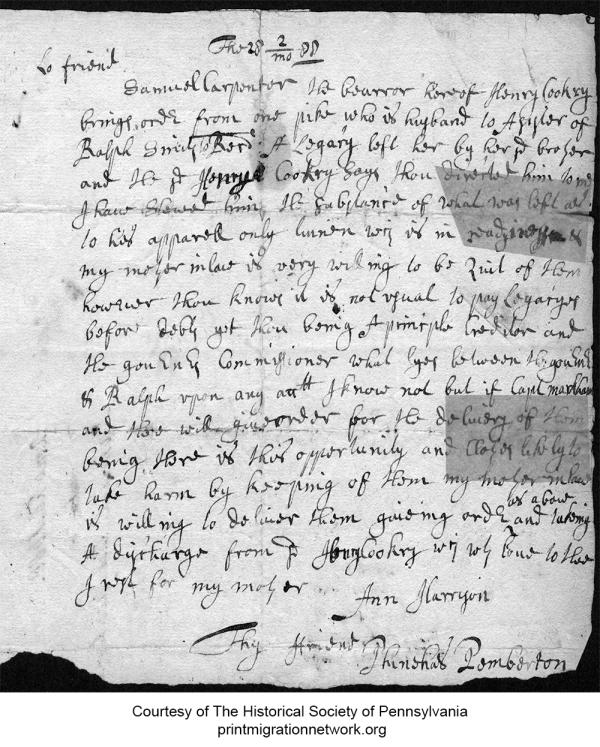 The 28 2/mo 88
Lo friend
Samuel Carpenter the bearror hereof Henry Cookry
brings ordr from one pike who is husband to A sister of
Ralph Smith A Legacy left her by her sd brother
and the sd Henry Cookry says thou directed him to me
I have shewed him the substance of what was left as
to his apparell only linnen wch is in
my mother in law is very willing to be quit of them
however thou knows it is not usual to pay Legacyes
before debts yet thou being A principle Creditor and
the Commissioner what lyes between the
& Ralph upon any acctt I know not but if Capt markham
and thee will give order for the delivery of them
being there is this opportunity and Cloths likely to
take harm by keeping of them my mother in law
is willing to deliver them giveing ordr as above and takeing
A dyscharge from sd Henry Cookry wth love to thee
I rest for my mother
Ann Harryson
Thy ffriend
Phinehas Pemberton
Courtesy of The Historical Society of Pennsylvania
printmigrationnetwork.org